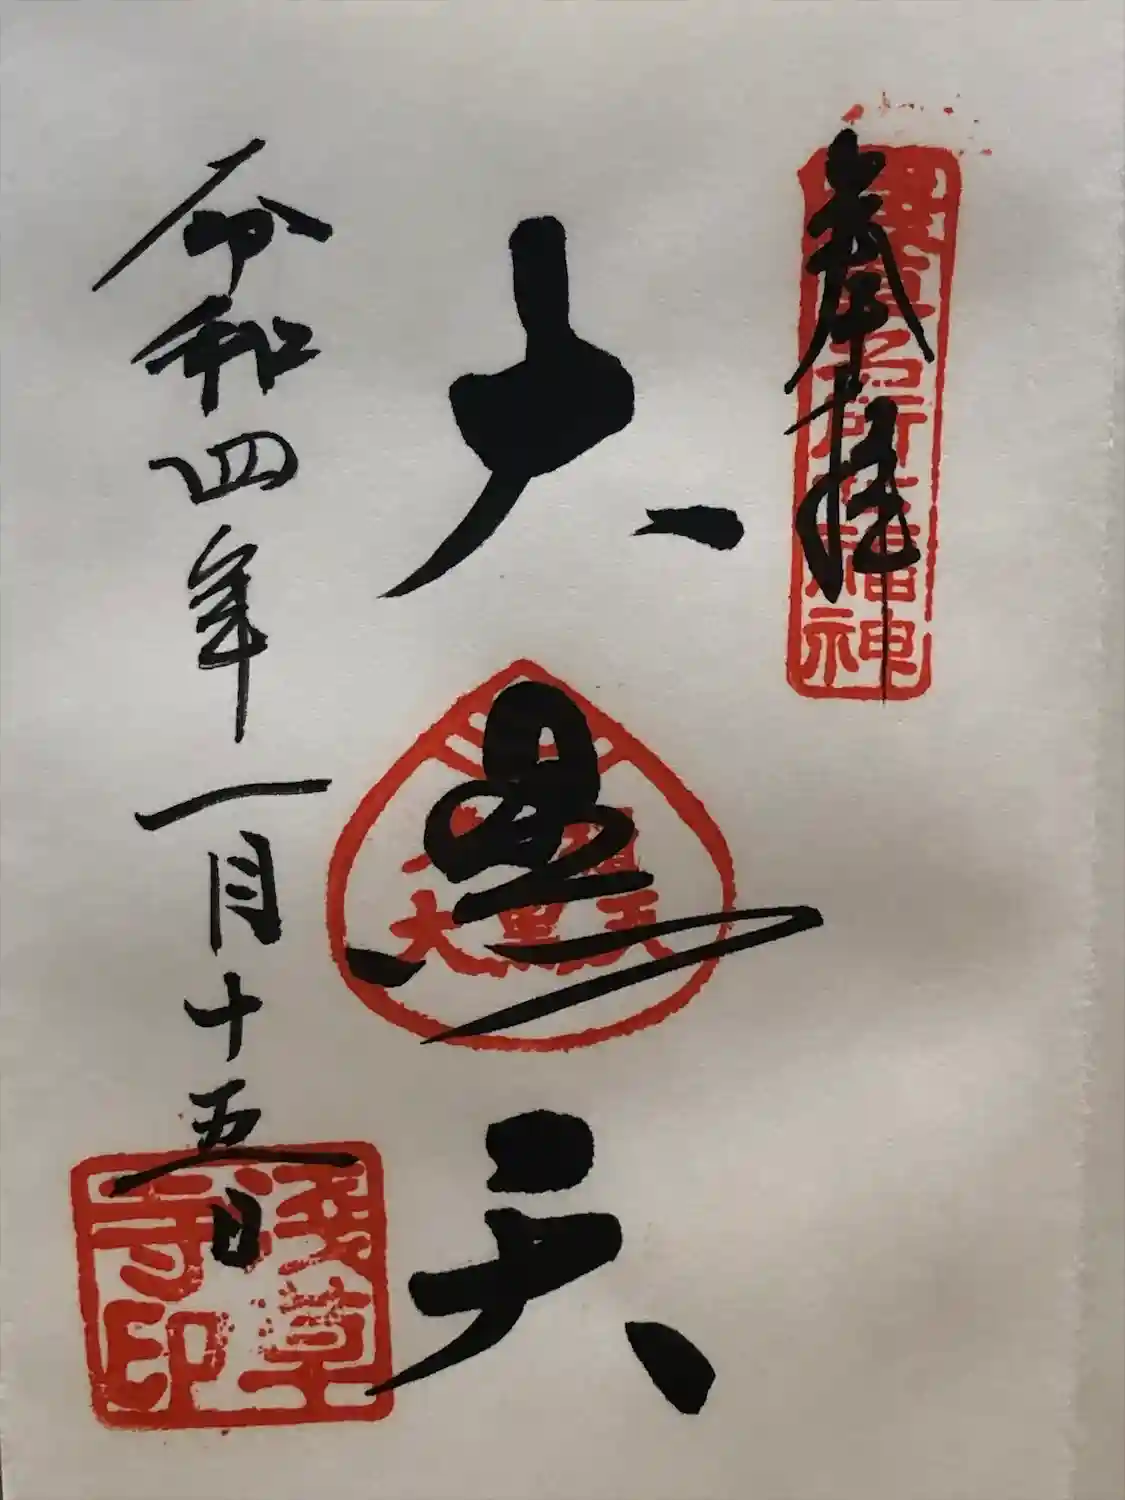 奉拝
浅草名所七福神
大黒天
大黒天
令和四年一月十五日
浅草
寺印